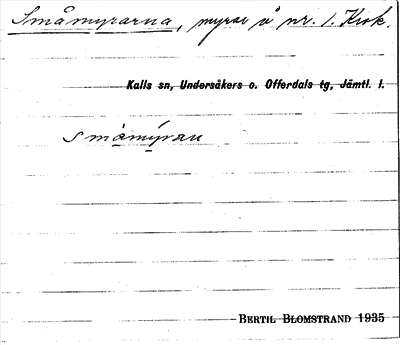 Småmyrarna, myrar å nr. 1. Krok.
Kalls sn, Undersåkers o. Offerdals tg, Jämtl. l.
småmýran
BERTIL BLOMSTRAND 1935